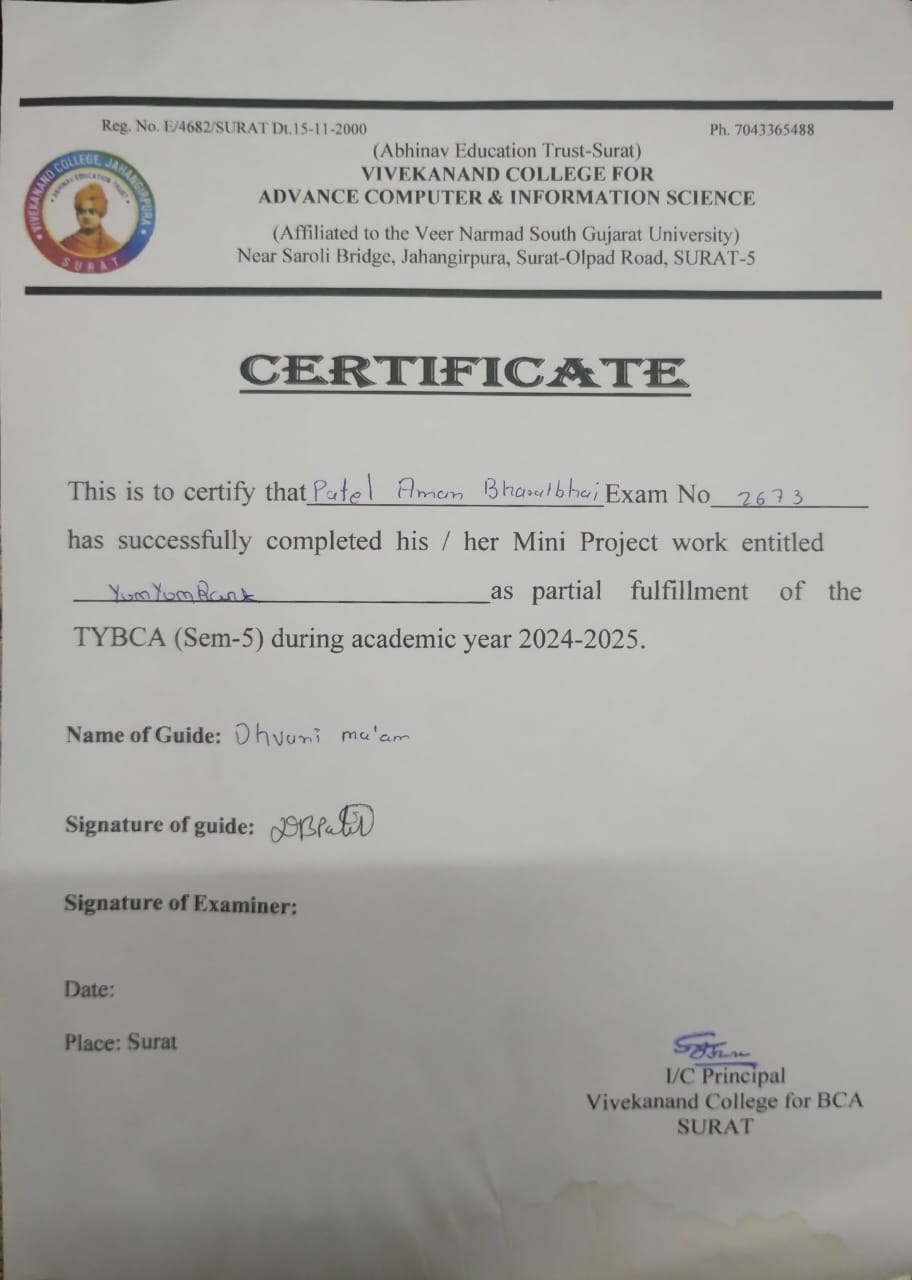 Reg. No. E/4682/SURAT Dt.15-11-2000 Ph. 7043365488
VIVEKANAND COLLEGE, JAHANGIRPURA
ABHINAV EDUCATION TRUST
SURAT
(Abhinav Education Trust-Surat)
VIVEKANAND COLLEGE FOR
ADVANCE COMPUTER & INFORMATION SCIENCE
(Affiliated to the Veer Narmad South Gujarat University)
Near Saroli Bridge, Jahangirpura, Surat-Olpad Road, SURAT-5
CERTIFICATE
This is to certify that Patel Aman Bharatbhai Exam No 2673
has successfully completed his / her Mini Project work entitled
as partial fulfillment of the
TYBCA (Sem-5) during academic year 2024-2025.
Name of Guide: Dhvani ma'am
Signature of guide:
Signature of Examiner:
Date:
Place: Surat
I/C Principal
Vivekanand College for BCA
SURAT